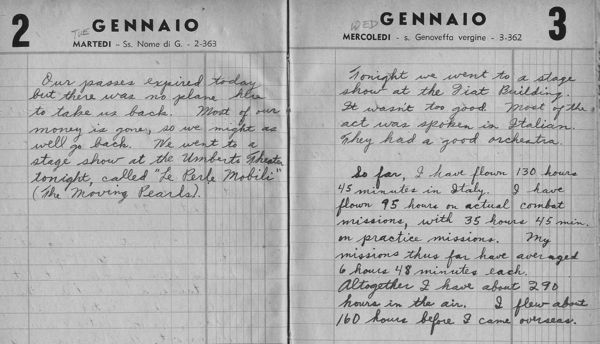 2
TUE
GENNAIO
MARTEDI - Ss. Nome di G. - 2-363
Our passes expired today
but there was no plane here
to take us back. Most of our
money is gone, so we might as
well go back. We went to a
stage show at the Umberto Theater
tonight, called "Le Perle Mobili"
(The Moving Pearls).
WED
GENNAIO
3
MERCOLEDI - s. Genoveffa vergine - 3-362
Tonight we went to a stage
show at the Fiat Building.
It wasn't too good. Most of the
act was spoken in Italian.
They had a good orchestra.
So far, I have flown 130 hours
45 minutes in Italy. I have
flown 95 hours on actual combat
missions, with 35 hours 45 min.
on practice missions. My
missions thus far have averaged
6 hours 48 minutes each.
Altogether I have about 290
hours in the air. I flew about
160 hours before I came overseas.